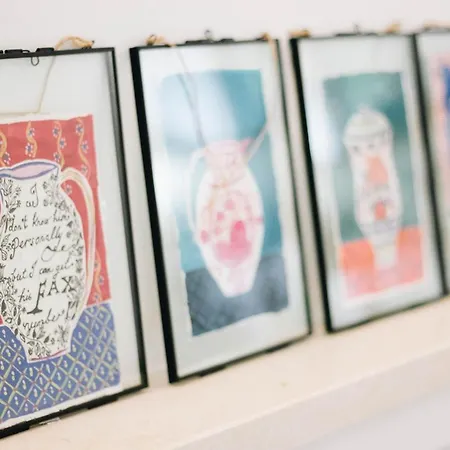 I
don't know him
personally
but I can get
his FAX
number